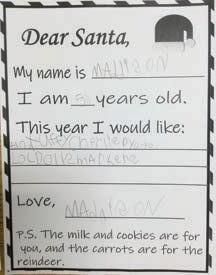 Dear Santa,
My name is MADISON
I am 5 years old.
This year I would like:
Love,
MADISON
P.S. The milk and cookies are for
you, and the carrots are for the
reindeer.